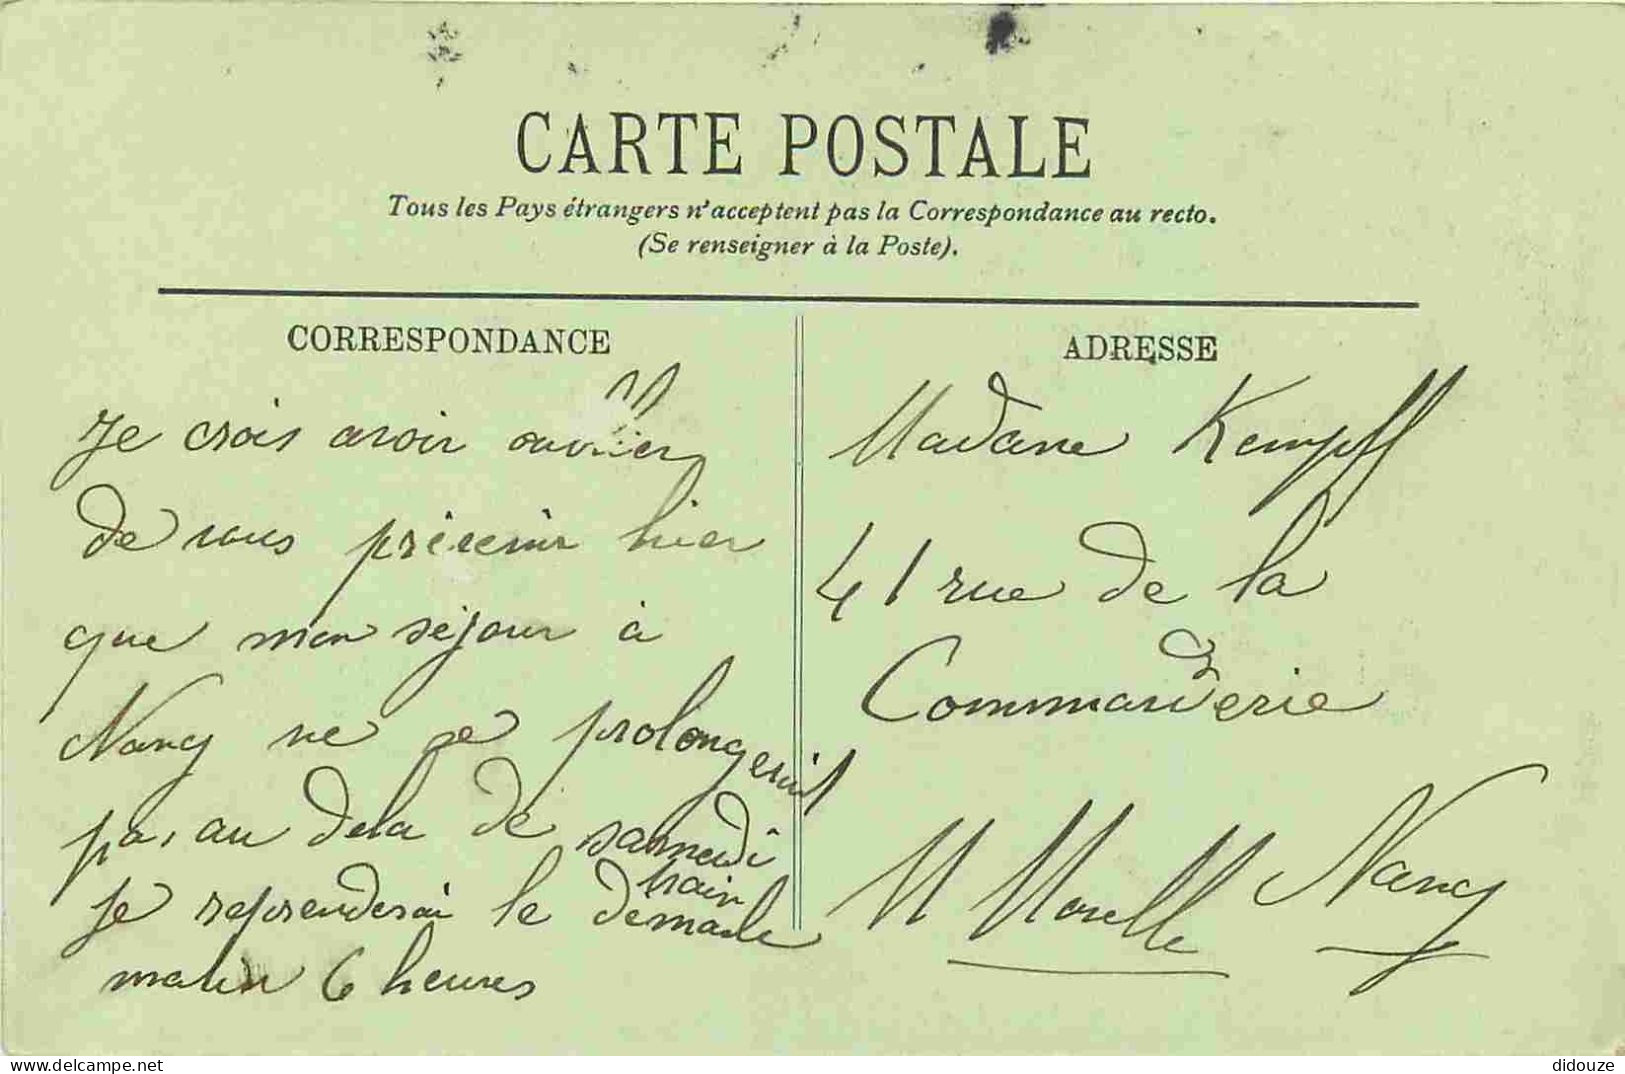 CARTE POSTALE
Tous les Pays étrangers n'acceptent pas la Correspondance au recto.
(Se renseigner à la Poste).
CORRESPONDANCE
Je crois avoir oublier
de vous prévenir hier
que mon séjour à
Nancy ne se prolongerait
pas au dela de samedi
train
Je reprenderai le demanche
matin 6 heures
ADRESSE
Madame Kempff
41 rue de la
Commanderie
Nancy
M Morelle
delcampe.net
didouze